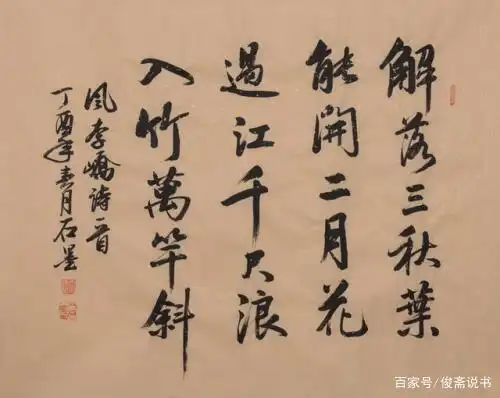 解落三秋葉
能開二月花
過江千尺浪
入竹萬竿斜
風李嶠詩一首
丁酉年春月石墨
百家号/俊斋说书